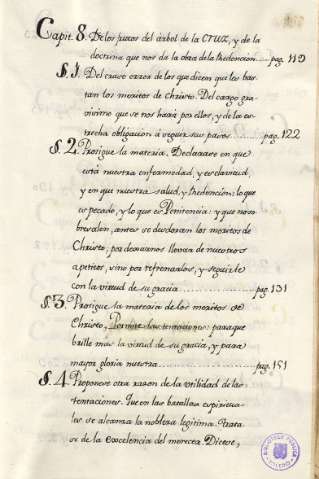 Capit. 8. De los frutos del arbol de la CRUZ, y de la
doctrina que nos da la obra de la Redencion.... pag. 119
§. 1. Del craso error de los que dicen que les bas-
tan los meritos de Christo. Del cargo gra-
vissimo que se nos hará por ellos, y de la es-
trecha obligacion a seguir sus pasos....... pag. 122
§. 2. Prosigue la materia. Declarase en que
está nuestra enfermedad, y esclavitud,
y en que nuestra salud, y Redencion: lo que
es pecado, y lo que es Penitencia: y que no so-
bresalen, antes se desdoran los meritos de
Christo, por dexarnos llevar de nuestros
apetitos, sino por refrenarlos, y seguirle
con la virtud de su gracia............ pag. 131
§. 3. Prosigue la materia de los meritos de
Christo, Permite las tentaciones para que
brille mas la virtud de su gracia, y para
mayor gloria nuestra.............. pag. 151
§. 4. Proponese otra razon de la utilidad de las
tentaciones. Que en las batallas espiritua-
les se alcanza la nobleza legitima. Trata-
se de la excelencia del merecer. Dicese,
BIBLIOTECA PUBLICA